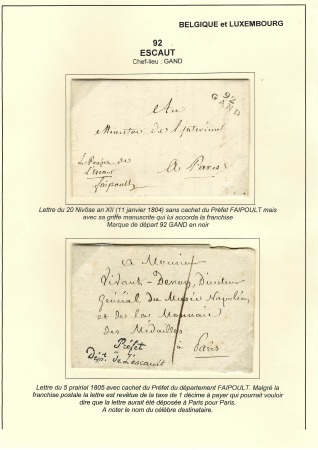 BELGIQUE et LUXEMBOURG
92
ESCAUT
Chef-lieu : GAND
92
GAND
Au
Ministre de l'intérieur
A Paris
Le Préfet de
l'Escaut
faipoult
Lettre du 20 Nivôse an XII (11 janvier 1804) sans cachet du Préfet FAIPOULT mais
avec sa griffe manuscrite qui lui accorda la franchise
Marque de départ 92 GAND en noir
a Monsieur
Vivant-Denon, Directeur
Général du Musée Napoléon,
et de la Monnaie
des Médailles
à Paris
Préfet
Dépt. de l'escault
Lettre du 5 prairial 1805 avec cachet du Préfet du département FAIPOULT. Malgré la
franchise postale la lettre est revêtue de la taxe de 1 décime à payer qui pourrait vouloir
dire que la lettre aurait été déposée à Paris pour Paris.
A noter le nom du célèbre destinataire.